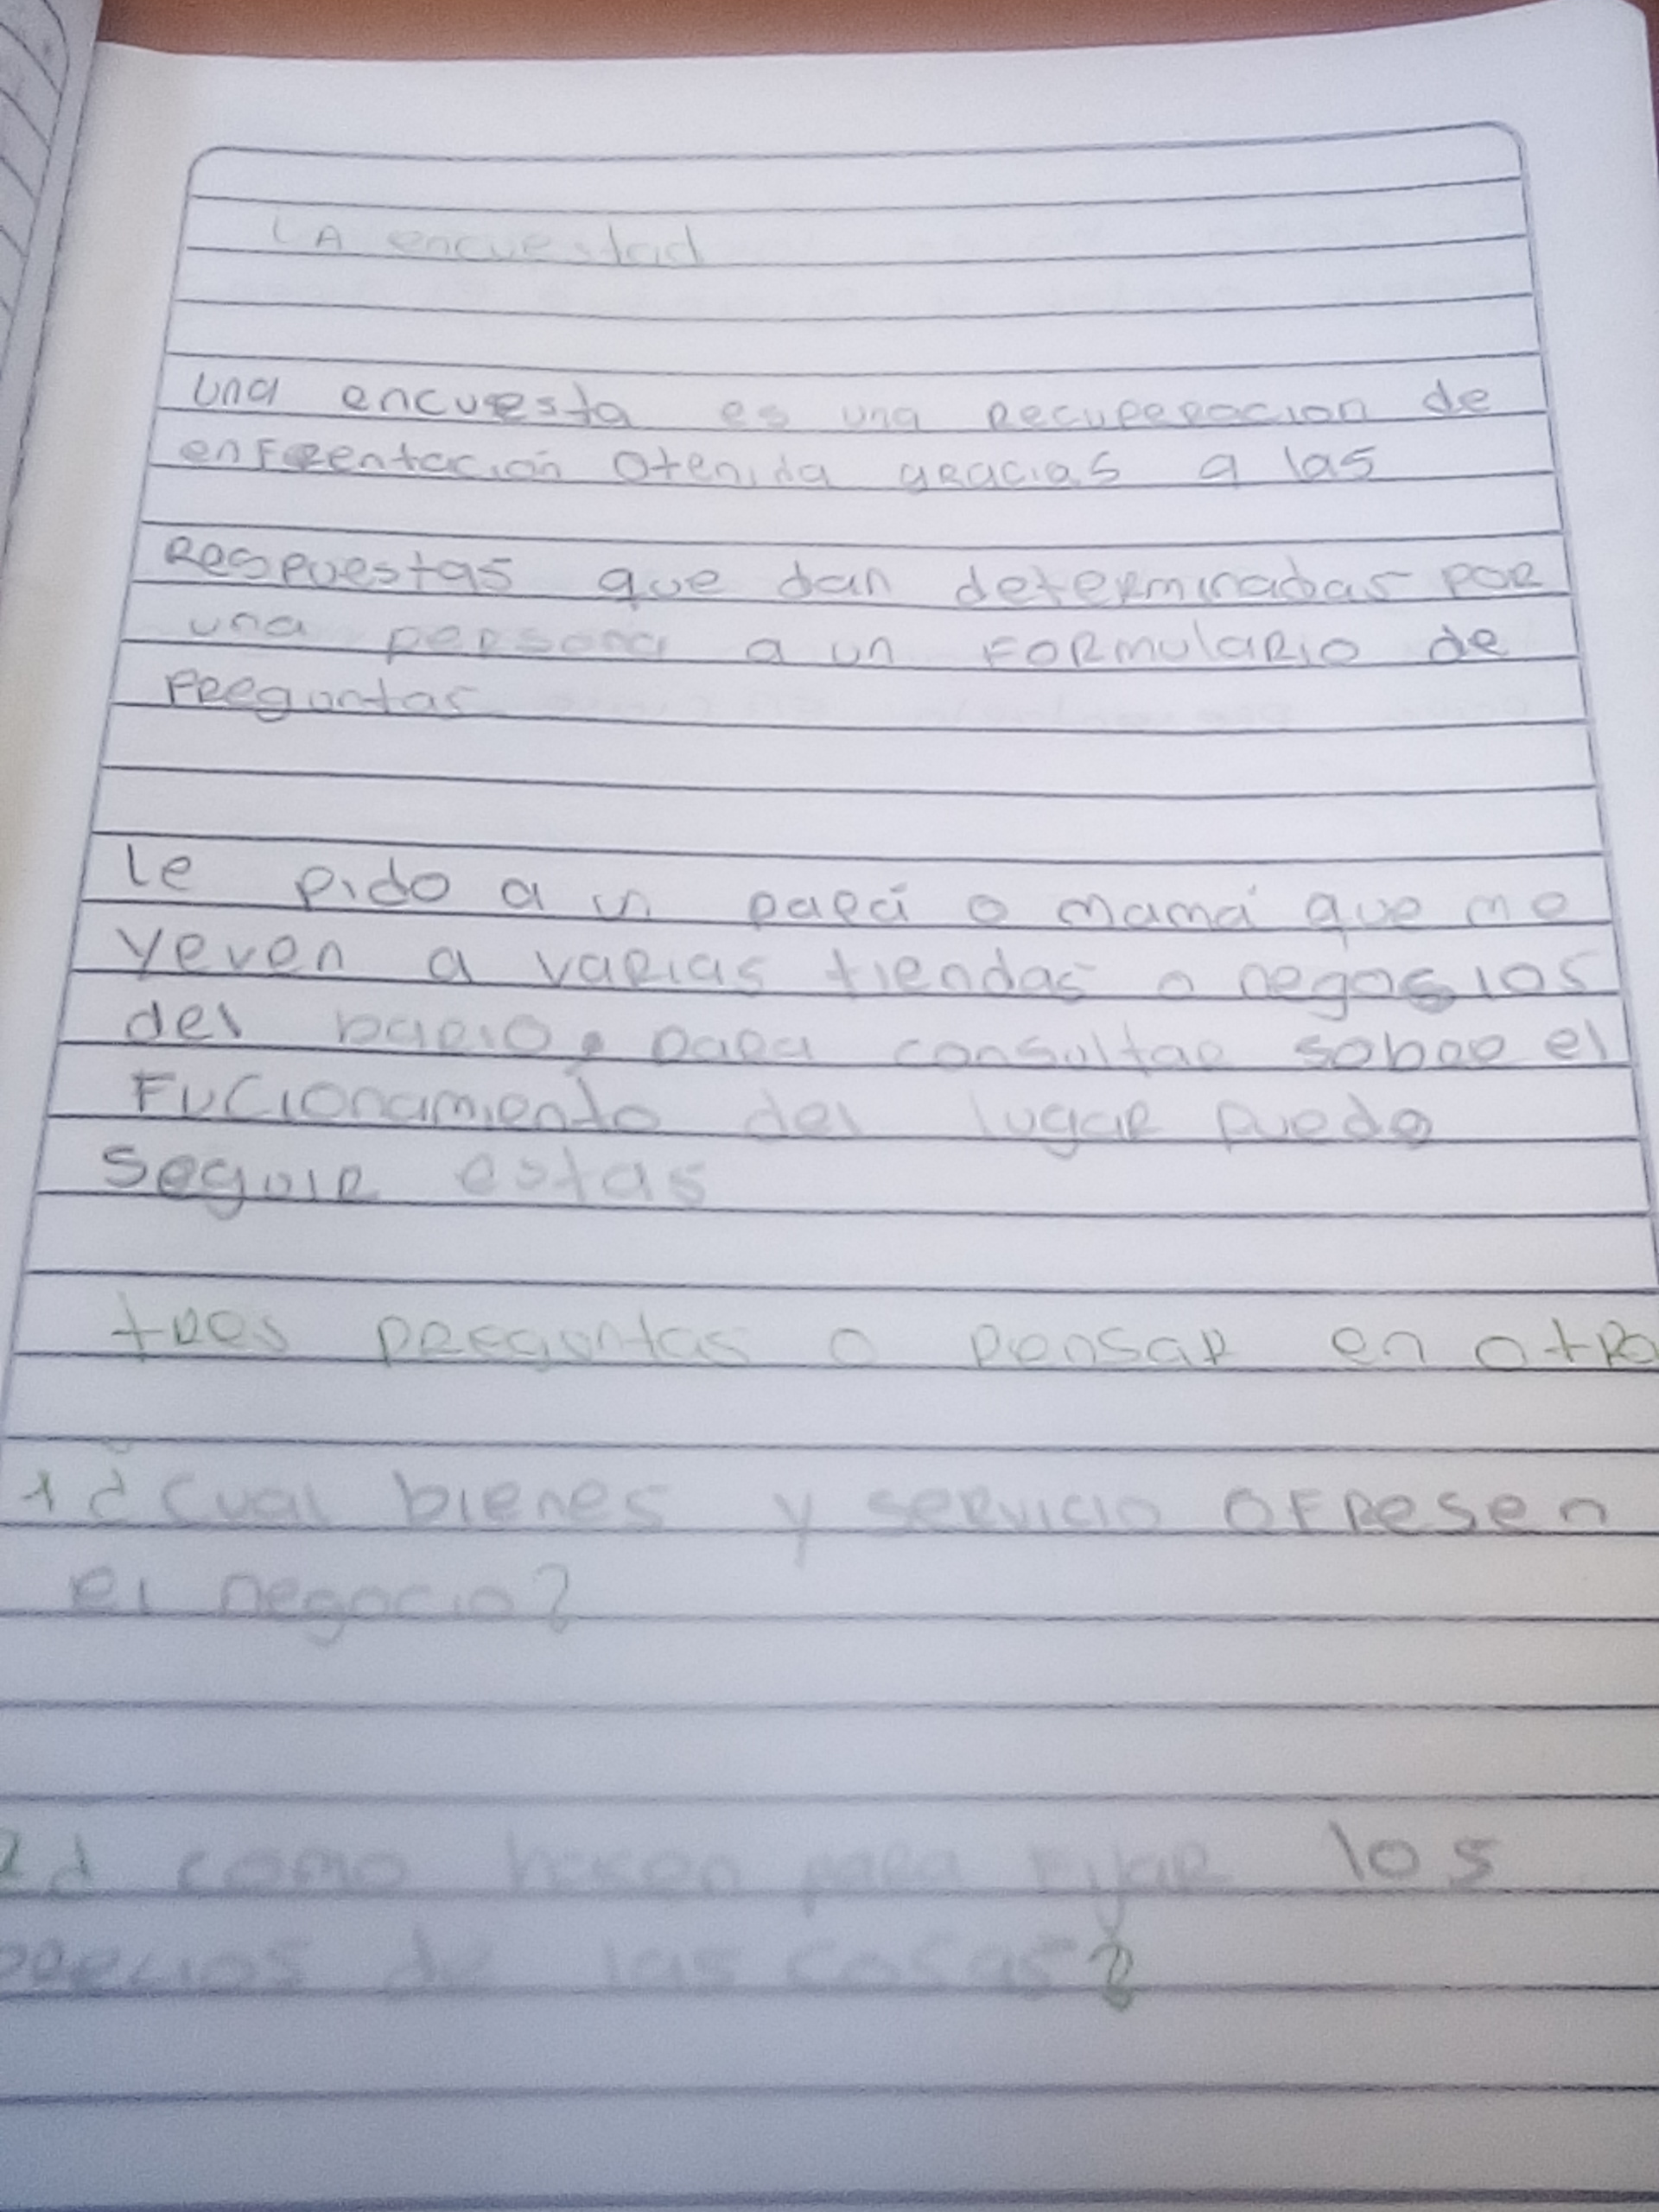 LA encuestad
una encuesta es una Recuperacion de
enfrentación Otenida gracias a las
Respuestas que dan determinadas por
una persona a un FORMulaRio de
preguntas
le pido a un papá o mamá que me
yeven a varias tiendas o negosios
del bario, para consultar sobre el
Fucionamiento del lugar puedo
seguir estas
tres preguntas o pensar en otra
1 ¿Cual bienes y servicio ofresen
el negocio?
2 ¿ como hasen para fijar los
precios de las cosas?